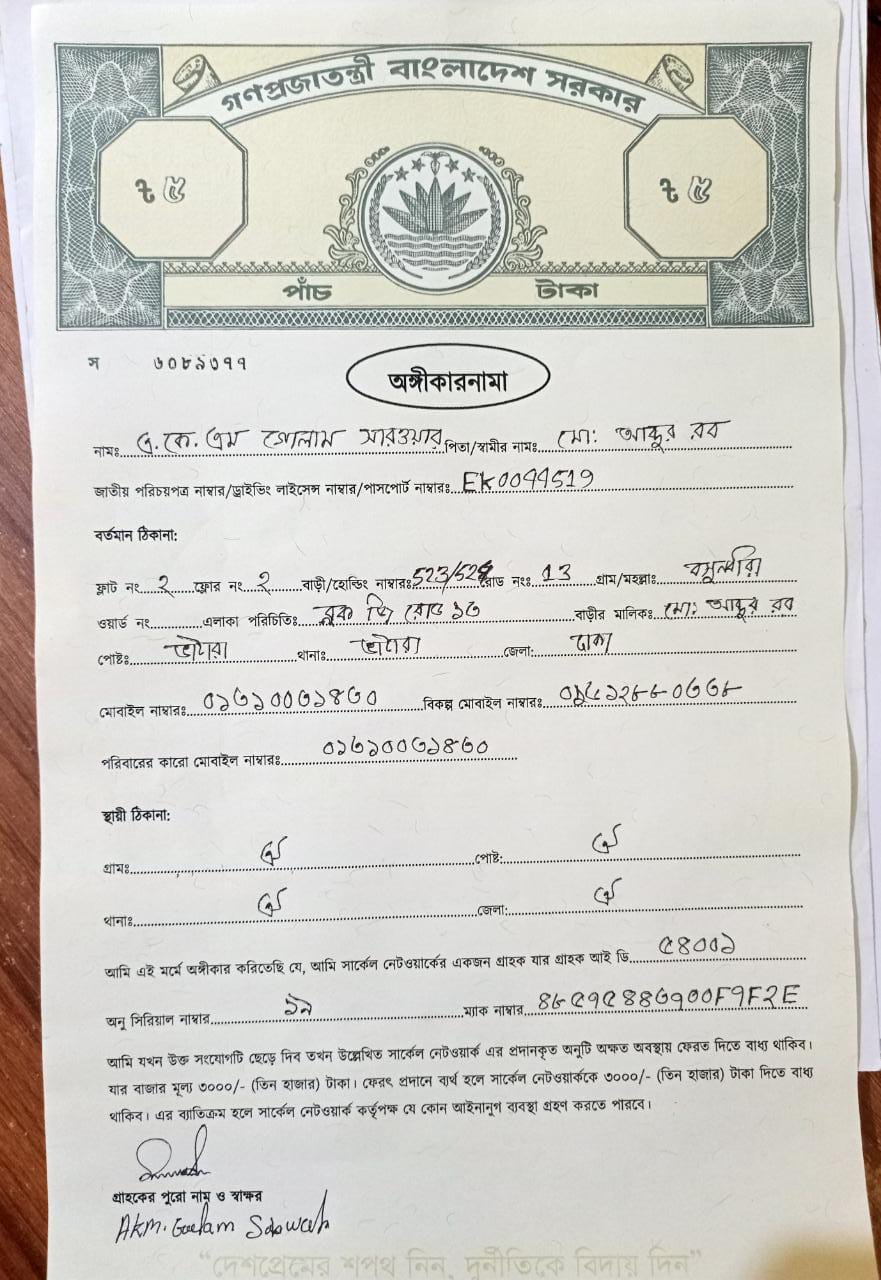 গণপ্রজাতন্ত্রী বাংলাদেশ সরকার
৳ ৫ ৳ ৫
পাঁচ টাকা
স ৬০৮৯৩৭৭
অঙ্গীকারনামা
নামঃ এ. কে. এম গোলাম সারওয়ার পিতা/স্বামীর নামঃ মো: আব্দুর রব
জাতীয় পরিচয়পত্র নাম্বার/ড্রাইভিং লাইসেন্স নাম্বার/পাসপোর্ট নাম্বারঃ EK0099519
বর্তমান ঠিকানা:
ফ্লাট নং ২ ফ্লোর নং ২ বাড়ী/হোল্ডিং নাম্বারঃ 523/524 রোড নংঃ 13 গ্রাম/মহল্লাঃ বসুন্ধরা
ওয়ার্ড নং এলাকা পরিচিতিঃ ব্লক জি রোড ১৩ বাড়ীর মালিকঃ মো: আব্দুর রব
পোষ্টঃ ভাটারা থানাঃ ভাটারা জেলা: ঢাকা
মোবাইল নাম্বারঃ ০১৬১০০৩১৪৩০ বিকল্প মোবাইল নাম্বারঃ
পরিবারের কারো মোবাইল নাম্বারঃ ০১৬১০০৩১৪৩০
স্থায়ী ঠিকানা:
গ্রামঃ ঐ পোষ্ট: ঐ
থানাঃ ঐ জেলা: ঐ
আমি এই মর্মে অঙ্গীকার করিতেছি যে, আমি সার্কেল নেটওয়ার্কের একজন গ্রাহক যার গ্রাহক আই ডি ৫৪০০১
অনু সিরিয়াল নাম্বার ১৯ ম্যাক নাম্বার
আমি যখন উক্ত সংযোগটি ছেড়ে দিব তখন উল্লেখিত সার্কেল নেটওয়ার্ক এর প্রদানকৃত অনুটি অক্ষত অবস্থায় ফেরত দিতে বাধ্য থাকিব।
যার বাজার মূল্য ৩০০০/- (তিন হাজার) টাকা। ফেরৎ প্রদানে ব্যর্থ হলে সার্কেল নেটওয়ার্ককে ৩০০০/- (তিন হাজার) টাকা দিতে বাধ্য
থাকিব। এর ব্যতিক্রম হলে সার্কেল নেটওয়ার্ক কর্তৃপক্ষ যে কোন আইনানুগ ব্যবস্থা গ্রহণ করতে পারবে।
গ্রাহকের পুরো নাম ও স্বাক্ষর
AKM. Goelam Sarwar
“দেশপ্রেমের শপথ নিন, দুর্নীতিকে বিদায় দিন”